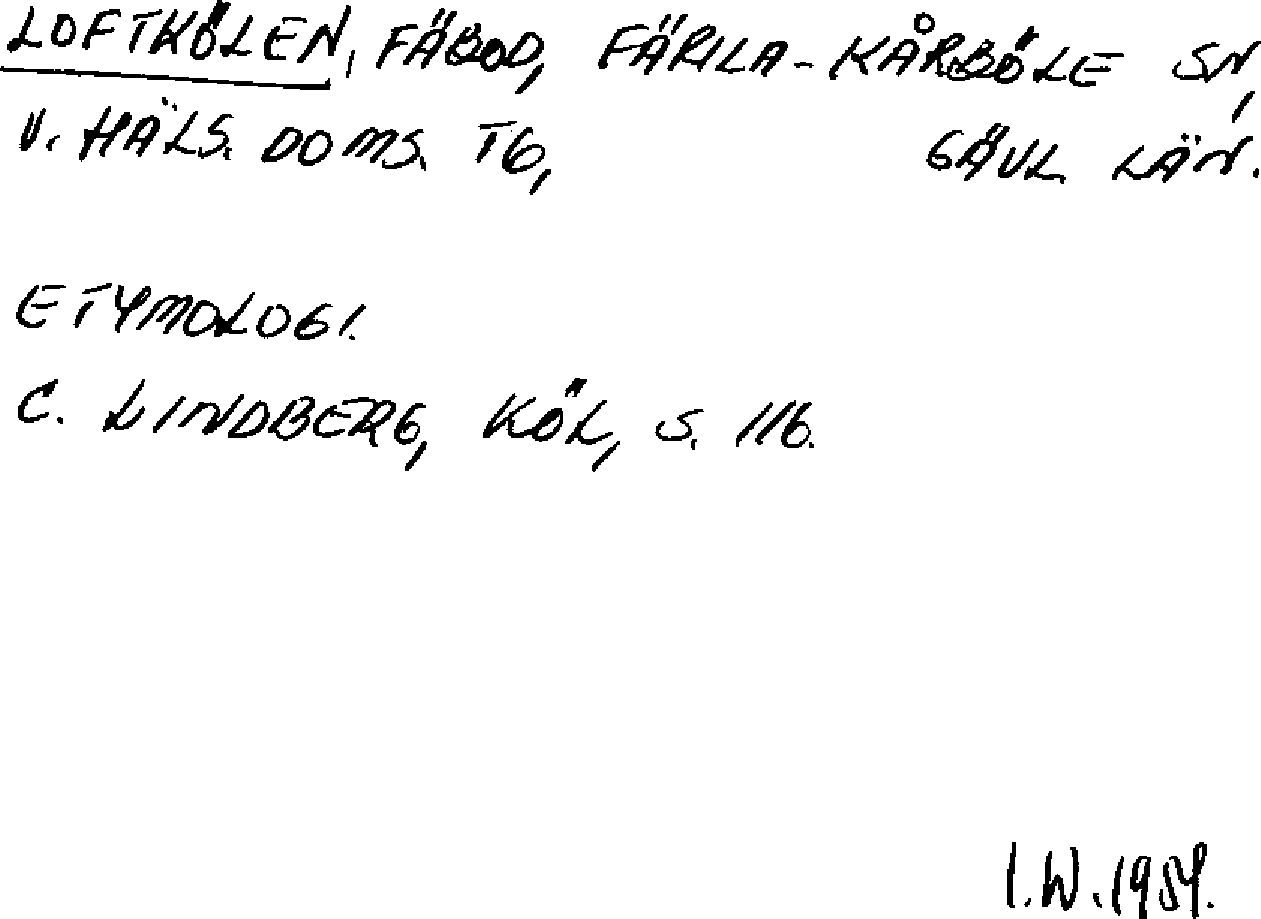 LOFTKÖLEN, FÄBOD, FÄRILA-KÅRBÖLE SN,
V. HÄLS. DOMS. TG, GÄVL. LÄN.
ETYMOLOGI.
C. LINDBERG, KÖL, S. 116.
I.W. 1959.